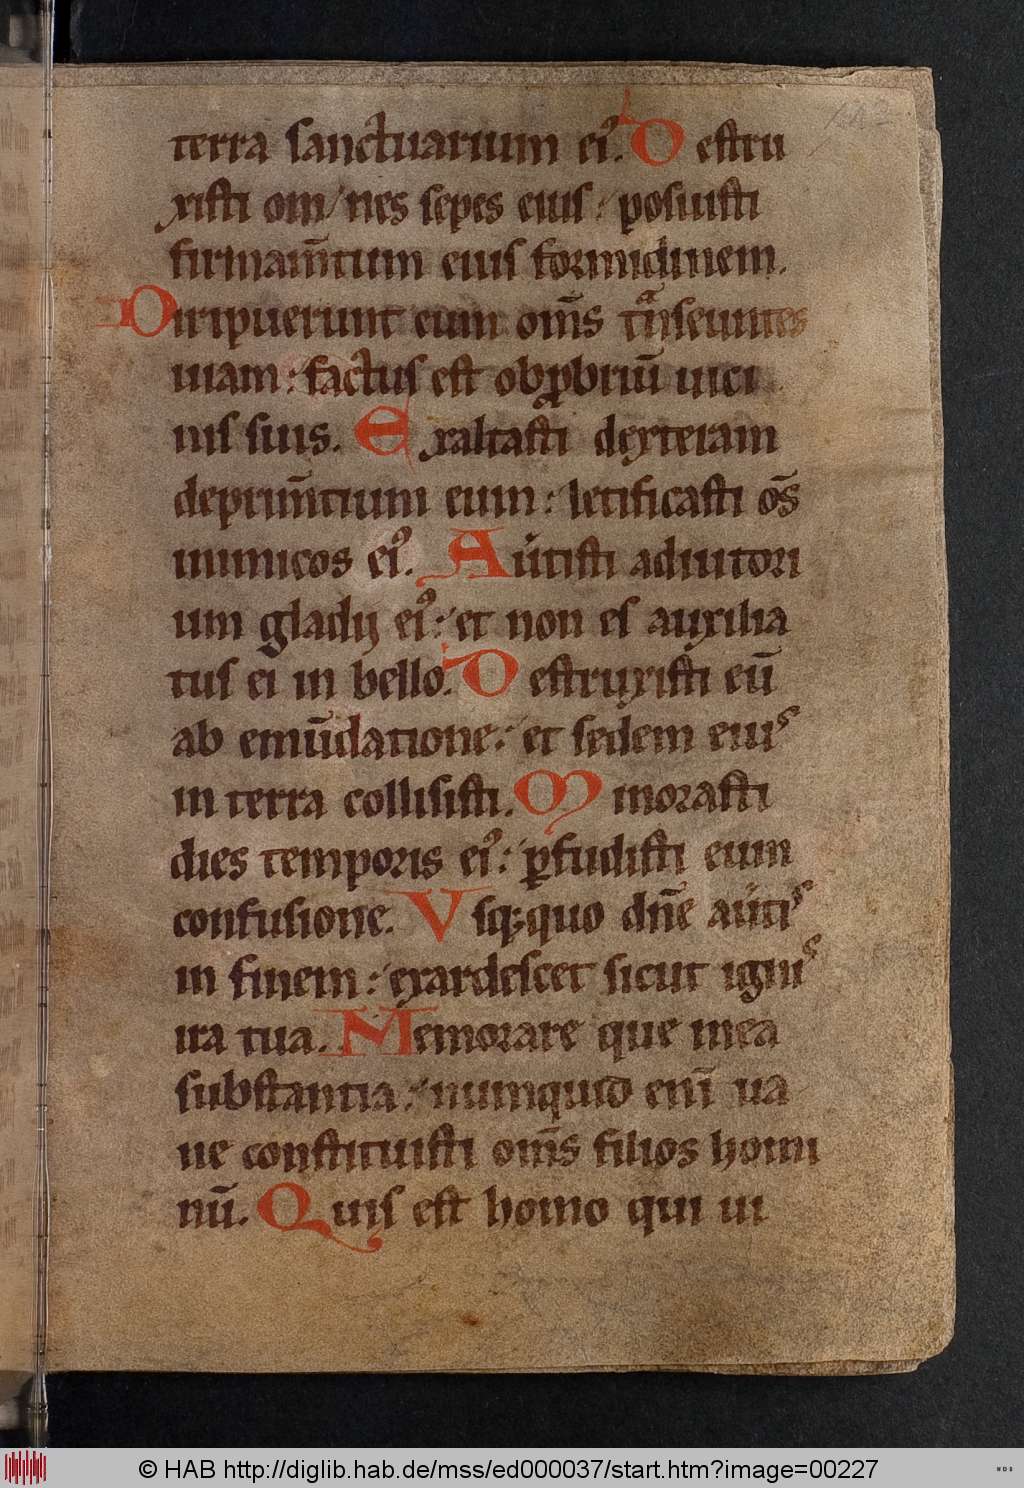 terra sanctuarium eiꝰ. Destru
xisti om/nes sepes eius: posuisti
firmam̅tum eius formidinem.
Diripuerunt eum om̅s tͣnseuntes
uiam: factus est obꝓbriu̅ uici
nis suis. Exaltasti dexteram
deprim̅tium eum: letificasti o̅s
inimicos eiꝰ. Au̅tisti adiutori
um gladij eiꝰ: et non es auxilia
tus ei in bello. Destruxisti eu̅
ab emu̅datione: et sedem eius
in terra collisisti. Minorasti
dies temporis eiꝰ: ꝑfudisti eum
confusione. Vsq;quo dn̅e au̅tis
in finem: exardescet sicut ignis
ira tua. Memorare que mea
substantia: numquid eni̅ ua
ne constituisti om̅s filios homi
nu̅. Quis est homo qui ui
© HAB http://diglib.hab.de/mss/ed000037/start.htm?image=00227